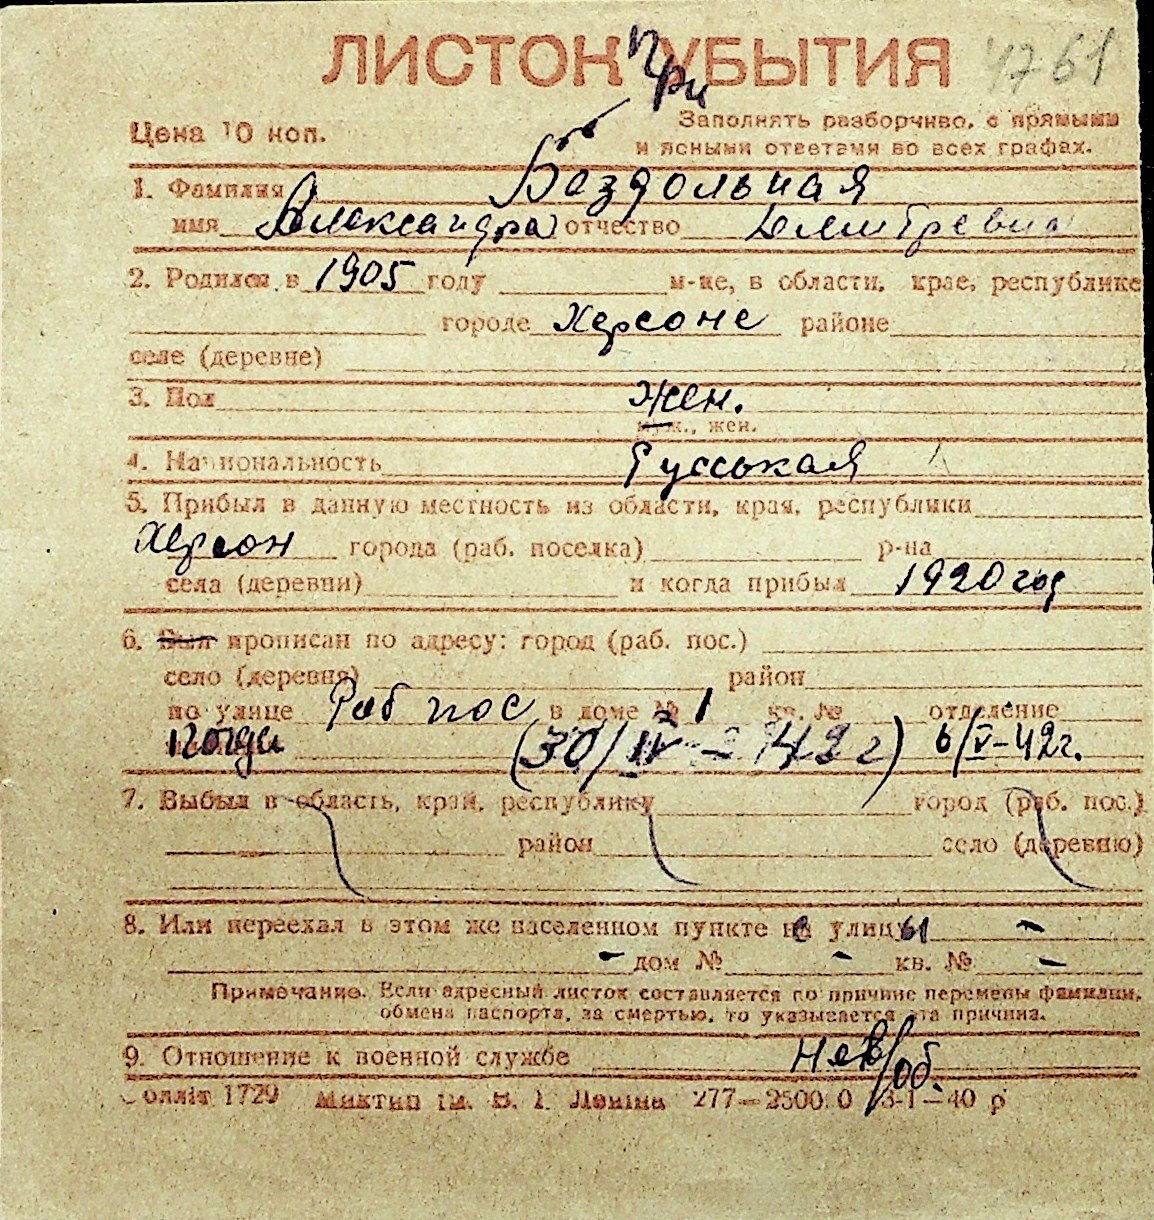 ЛИСТОК УБЫТИЯ 4761
при
Цена 10 коп.
Заполнять разборчиво, с прямыми
и ясными ответами во всех графах.
1. Фамилия Бездольная
имя Александра отчество Дмитревна
2. Родился в 1905 году м-це, в области, крае, республике
городе Херсоне районе
селе (деревне)
3. Пол жен.
муж., жен.
4. Национальность Русськая
5. Прибыл в данную местность из области, края, республики
Херсон города (раб. поселка) р-на
села (деревни) и когда прибыл 1920 год
6. Был прописан по адресу: город (раб. пос.)
село (деревня) район
по улице Раб пос в доме № 1 кв. № отделение
(30/IV-42 г) 6/V-42г.
7. Выбыл в область, край, республику город (раб. пос.)
район село (деревню)
8. Или переехал в этом же населенном пункте с улицы -
- дом № - кв. № -
Примечание. Если адресный листок составляется по причине перемены фамилии,
обмена паспорта, за смертью, то указывается эта причина.
9. Отношение к военной службе нев/об.
1729 Миктип ім. В. І. Леніна 277—2500.0 3-1—40 р